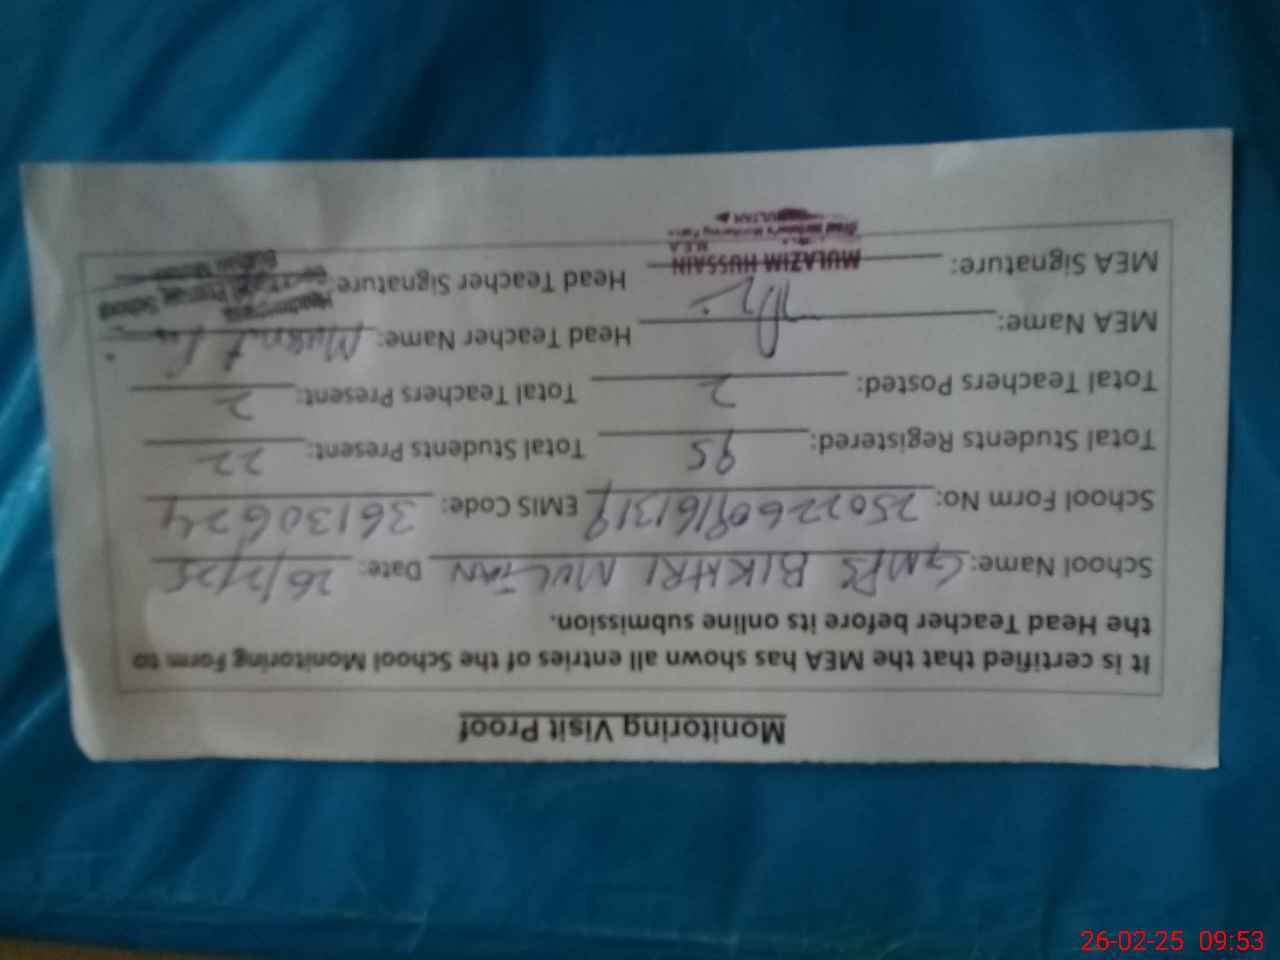 Monitoring Visit Proof
It is certified that the MEA has shown all entries of the School Monitoring Form to
the Head Teacher before its online submission.
School Name: GMPS BIKHRI MULTAN Date: 26/2/25
School Form No: EMIS Code: 36130624
Total Students Registered: 95 Total Students Present: 22
Total Teachers Posted: 2 Total Teachers Present: 2
MEA Name: Head Teacher Name:
MEA Signature: MULAZIM HUSSAIN Head Teacher Signature:
M.E.A
26-02-25 09:53